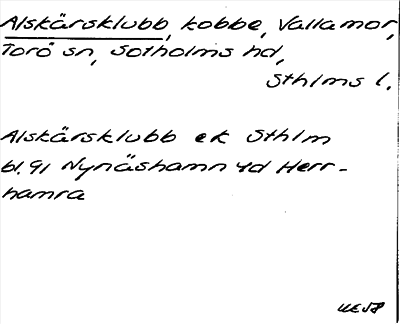 Alskärsklubb, kobbe, Vallamor,
Torö sn, Sotholms hd,
Sthlms l.
Alskärsklubb ek Sthlm
bl. 91 Nynäshamn 4d Herr-
hamra